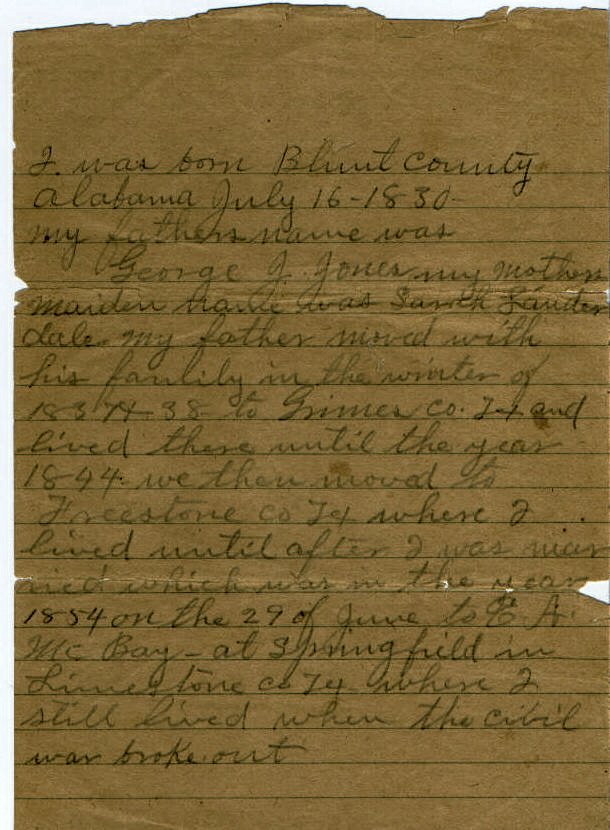 I was born Blunt County
Alabama July 16-1830-
my fathers name was
George J. Jones my mothers
maiden name was Sarah Lander
dale. my father moved with
his famlily in the winter of
1837 & 38 to Grimes co. Tx and
lived there until the year
1844. we then moved to
Freestone co Tx where I
lived until after I was mar
ried which was in the year
1854 on the 29 of June to E. A.
Mc Bay - at Springfield in
Limestone co Tx where I
still lived when the cibil
war broke out